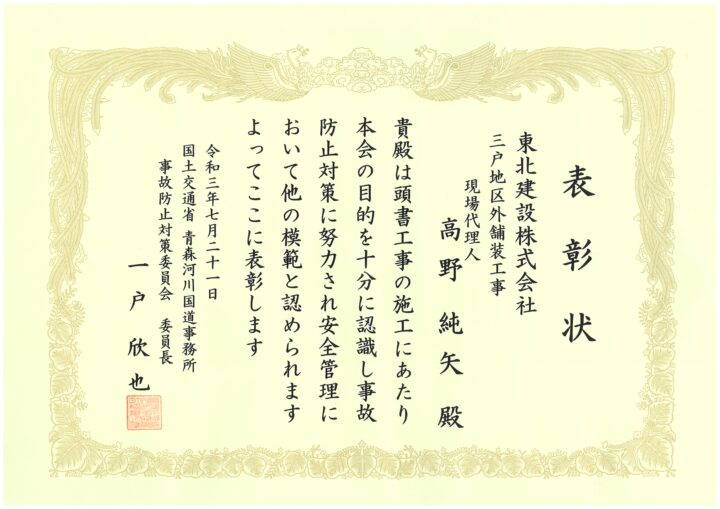 表彰状
東北建設株式会社
三戸地区外舗装工事
現場代理人
高野純矢殿
貴殿は頭書工事の施工にあたり
本会の目的を十分に認識し事故
防止対策に努力され安全管理に
おいて他の模範と認められます
よってここに表彰します
令和三年七月二十一日
国土交通省 青森河川国道事務所
事故防止対策委員会 委員長
一戸欣也